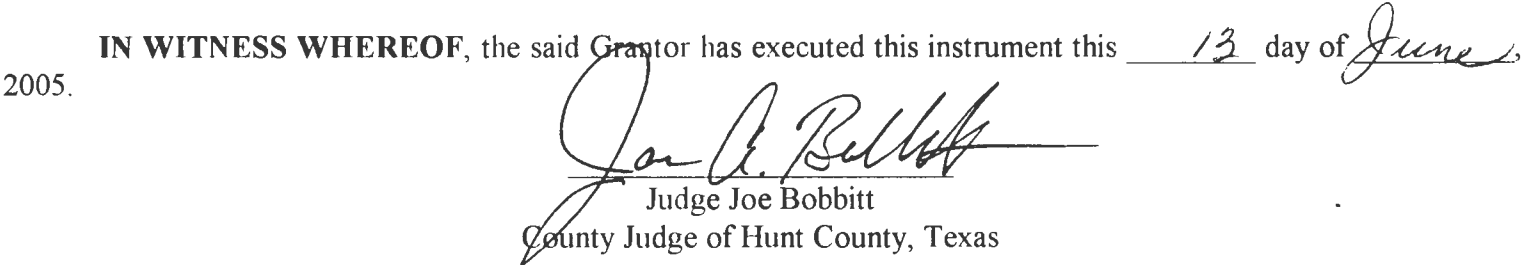 IN WITNESS WHEREOF, the said Grantor has executed this instrument this 13 day of June,
2005.
Joe A. Bobbitt
Judge Joe Bobbitt
County Judge of Hunt County, Texas